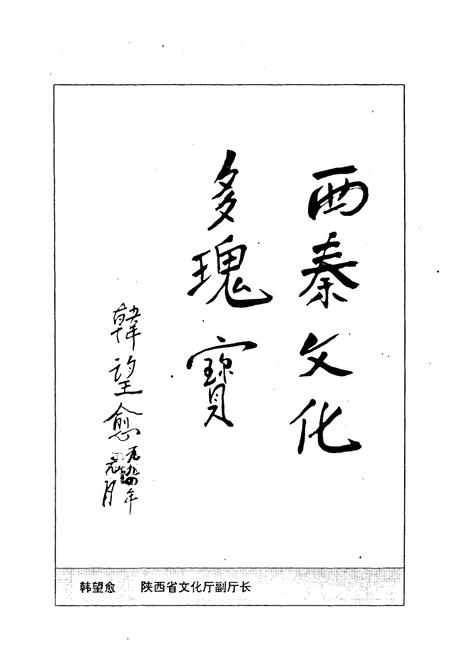 西秦文化
多瑰寳
韩望愈
一九九四年
元月
韩望愈 陕西省文化厅副厅长